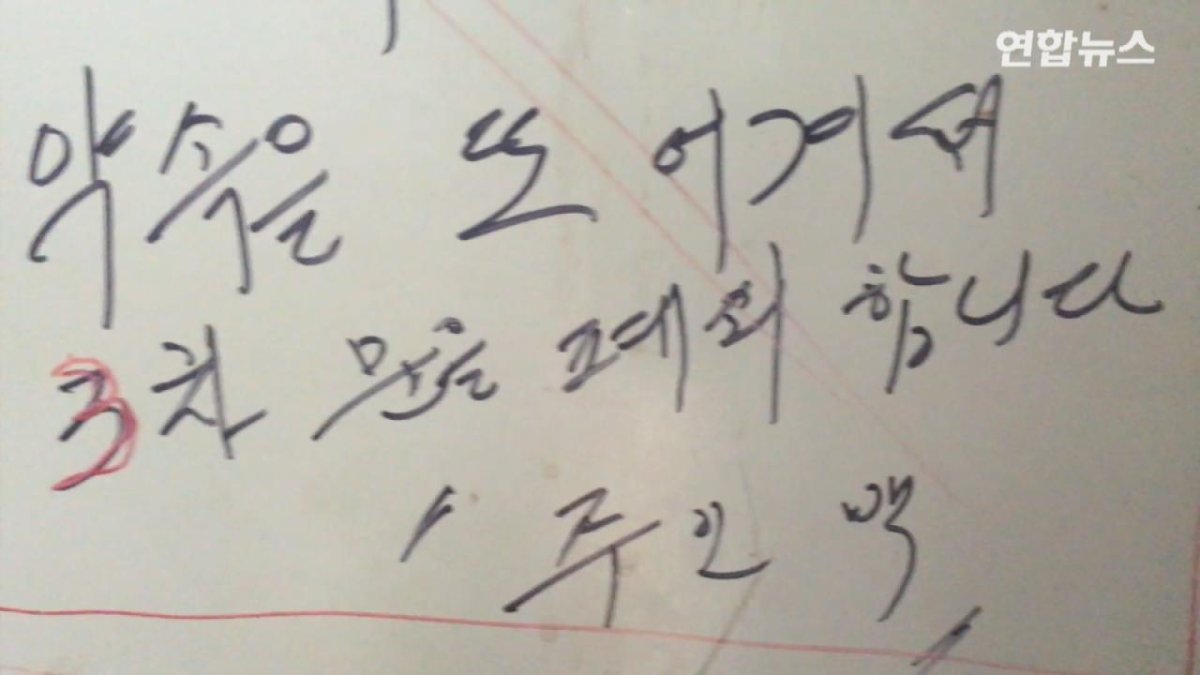 연합뉴스
약수을 또 어겨서
3차 문을 폐쇄 합니다
" 주인 백 "